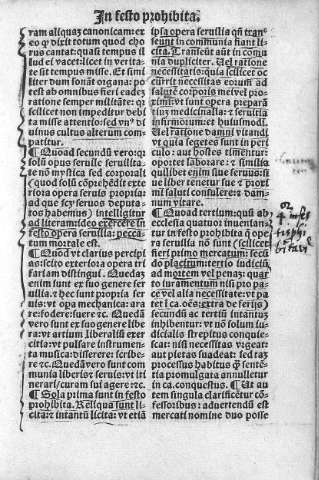 In festo prohibita.
ram aliquā canonicam: ex
eo qᵈ dixit totum quod cho
rus cantat: quasi tempus il
lud ei vacet: licet in verita
te sit tempus misse. Et simi
liter dum sonāt organa: po
rest ab omnibus fieri eadē
ratione semper militāte: qᵈ
scilicet non impeditur debi
ta misse attentio: sed vnᵒ di
uinus cultus alterum com
patitur.
¶ Quoad secundū vero: qᵈ
solū opus seruile seruilita
te nō mystica sed corporali
(quod solū cōprehēdit exte
riora opera seruis propria:
ad que scȝ seruos deputa
tos habemus) intelligitur
ad literam: ideo exercere in
festo opera seruilia: pecca
tum mortale est.
¶ Quod vt clarius percipi
as: scito exteriora opera tri
fariam distingui. Quedaȝ
enim sunt ex suo genere ser
uilia. et hec sunt propria ser
uis: vt opa mechanica: ara
re: fodere: suere ꝛc. Quedā
vero sunt ex suo genere libe
ra: vt artium liberaliū exer
citia: vt pulsare instrumen
ta musica: disserere: scribe
re ꝛc. Quedam vero sunt com
munia liberis ⁊ seruis: vt iti
nerari/curam sui agere ꝛc.
¶ Sola prima sunt in festo
prohibita. Reliqua sunt li
cita: ⁊ intantū licita: vt etiā
ipsa opera seruilia qn̄ tran
seunt in communia fiant li
cita. Transeūt aūt in commu
nia dupliciter. Uel ratione
necessitatis: quia scilicet oc
currit necessitas eorum ad
salutē corporis mei vel pro
ximi: vt sunt opera prepara
tiua medicinalia: ⁊ seruitia
infirmorum: et huiusmodi.
Uel ratione damni vitandi
vt quia segetes sunt in peri
culo: aut hostes timentur:
oportet laborare: ⁊ ⁊ similia
quilibet enim siue seruus: si
ue liber tenetur sue ⁊ proxi
mi saluti consulere: ⁊ dam
num vitare.
¶ Quoad tertium: que ab
ecclesia quatuor inueniātur
in festo prohibita que ope
ra seruilia nō sunt (scilicet
fieri primo mercatum: secū
do placitum: tertio iudiciū
ad mortem vel penaȝ: quar
to iuramentum nisi pro pa
ce vel alia necessitate: vt pa
tet
secundū ac tertiū intantus
inhibentur: vt nō solum iu
dicialis strepitus conquie
scat: nisi necessitas vrgeat
aut pietas suadeat: sed tam
processus habitus qᵐ sen
tentia promulgata annulletur
in ca. conquestus. ¶ Ut au
tem singula clarificētur cō
fessoribus: aduertendū est
mercati nomine duo posse